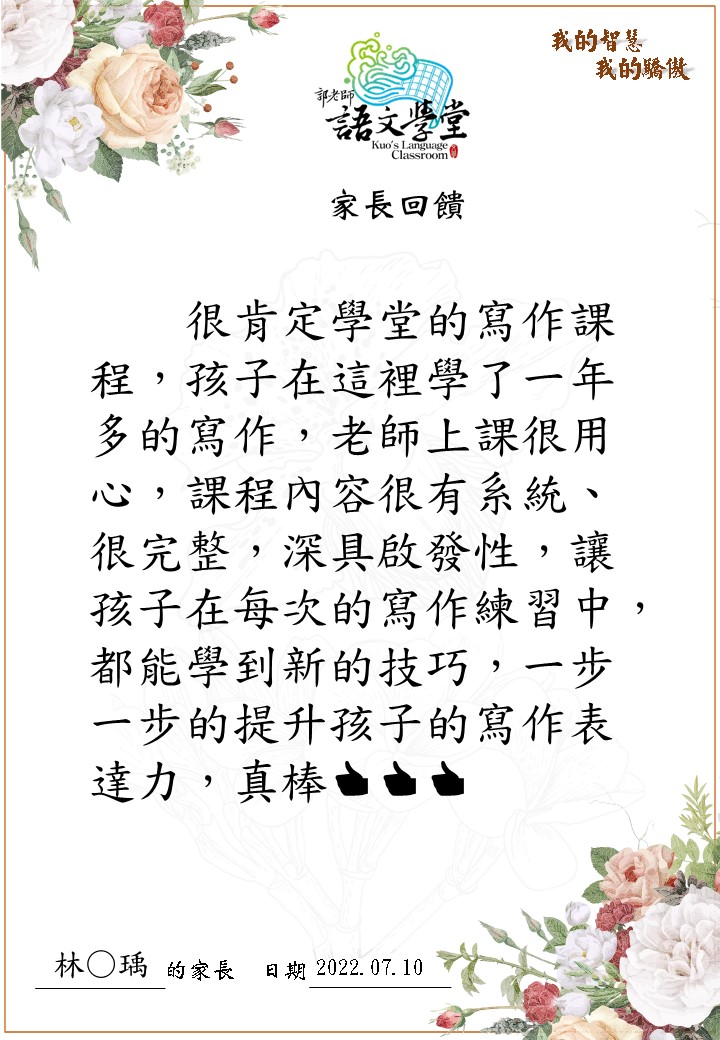 我的智慧
我的驕傲
郭老師
語文學堂
Kuo's Language
Classroom
家長回饋
很肯定學堂的寫作課
程，孩子在這裡學了一年
多的寫作，老師上課很用
心，課程內容很有系統、
很完整，深具啟發性，讓
孩子在每次的寫作練習中，
都能學到新的技巧，一步
一步的提升孩子的寫作表
達力，真棒👍👍👍
林○瑀的家長 日期2022.07.10